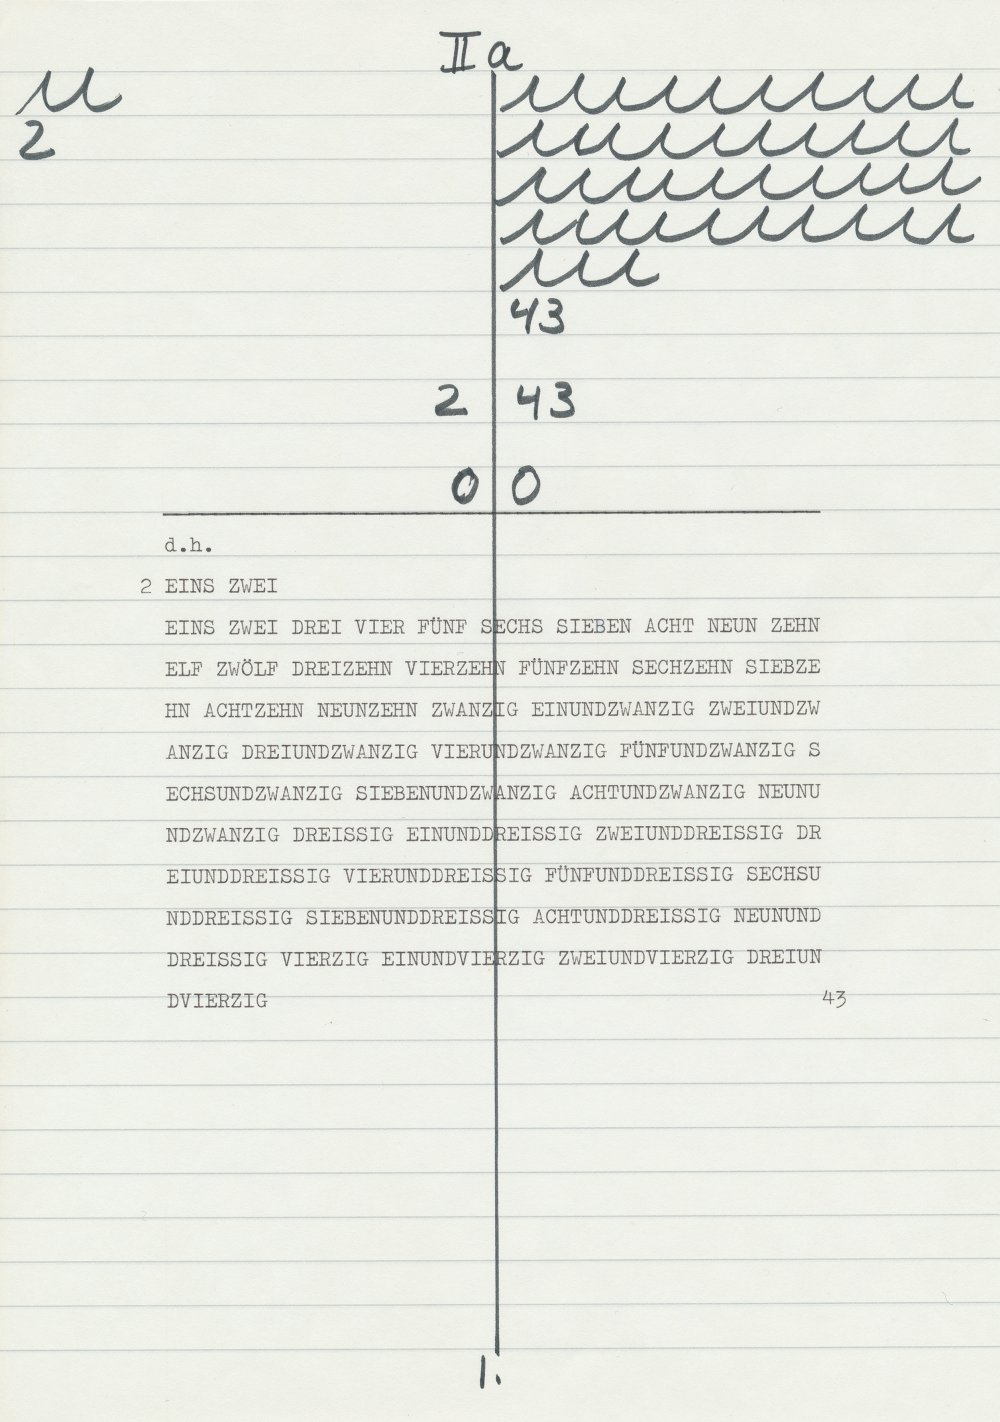 II a
2
43
2 43
0 0
d.h.
2 EINS ZWEI
EINS ZWEI DREI VIER FÜNF SECHS SIEBEN ACHT NEUN ZEHN
ELF ZWÖLF DREIZEHN VIERZEHN FÜNFZEHN SECHZEHN SIEBZE
HN ACHTZEHN NEUNZEHN ZWANZIG EINUNDZWANZIG ZWEIUNDZW
ANZIG DREIUNDZWANZIG VIERUNDZWANZIG FÜNFUNDZWANZIG S
ECHSUNDZWANZIG SIEBENUNDZWANZIG ACHTUNDZWANZIG NEUNU
NDZWANZIG DREISSIG EINUNDDREISSIG ZWEIUNDDREISSIG DR
EIUNDDREISSIG VIERUNDDREISSIG FÜNFUNDDREISSIG SECHSU
NDDREISSIG SIEBENUNDDREISSIG ACHTUNDDREISSIG NEUNUND
DREISSIG VIERZIG EINUNDVIERZIG ZWEIUNDVIERZIG DREIUN
DVIERZIG 43
1.